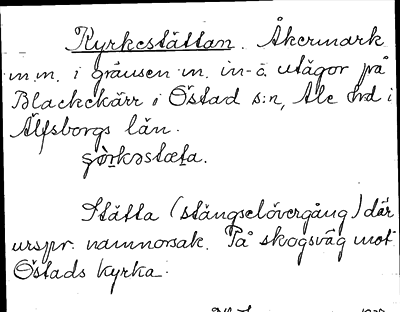 Kyrkestättan. Åkermark
m.m. i gränsen m. in- o. utägor på
Blackekärr i Östad s:n, Ale hd i
Älfsborgs län.
Stätta (stängselövergång) där
urspr. namnorsak. På skogsväg mot
Östads kyrka.